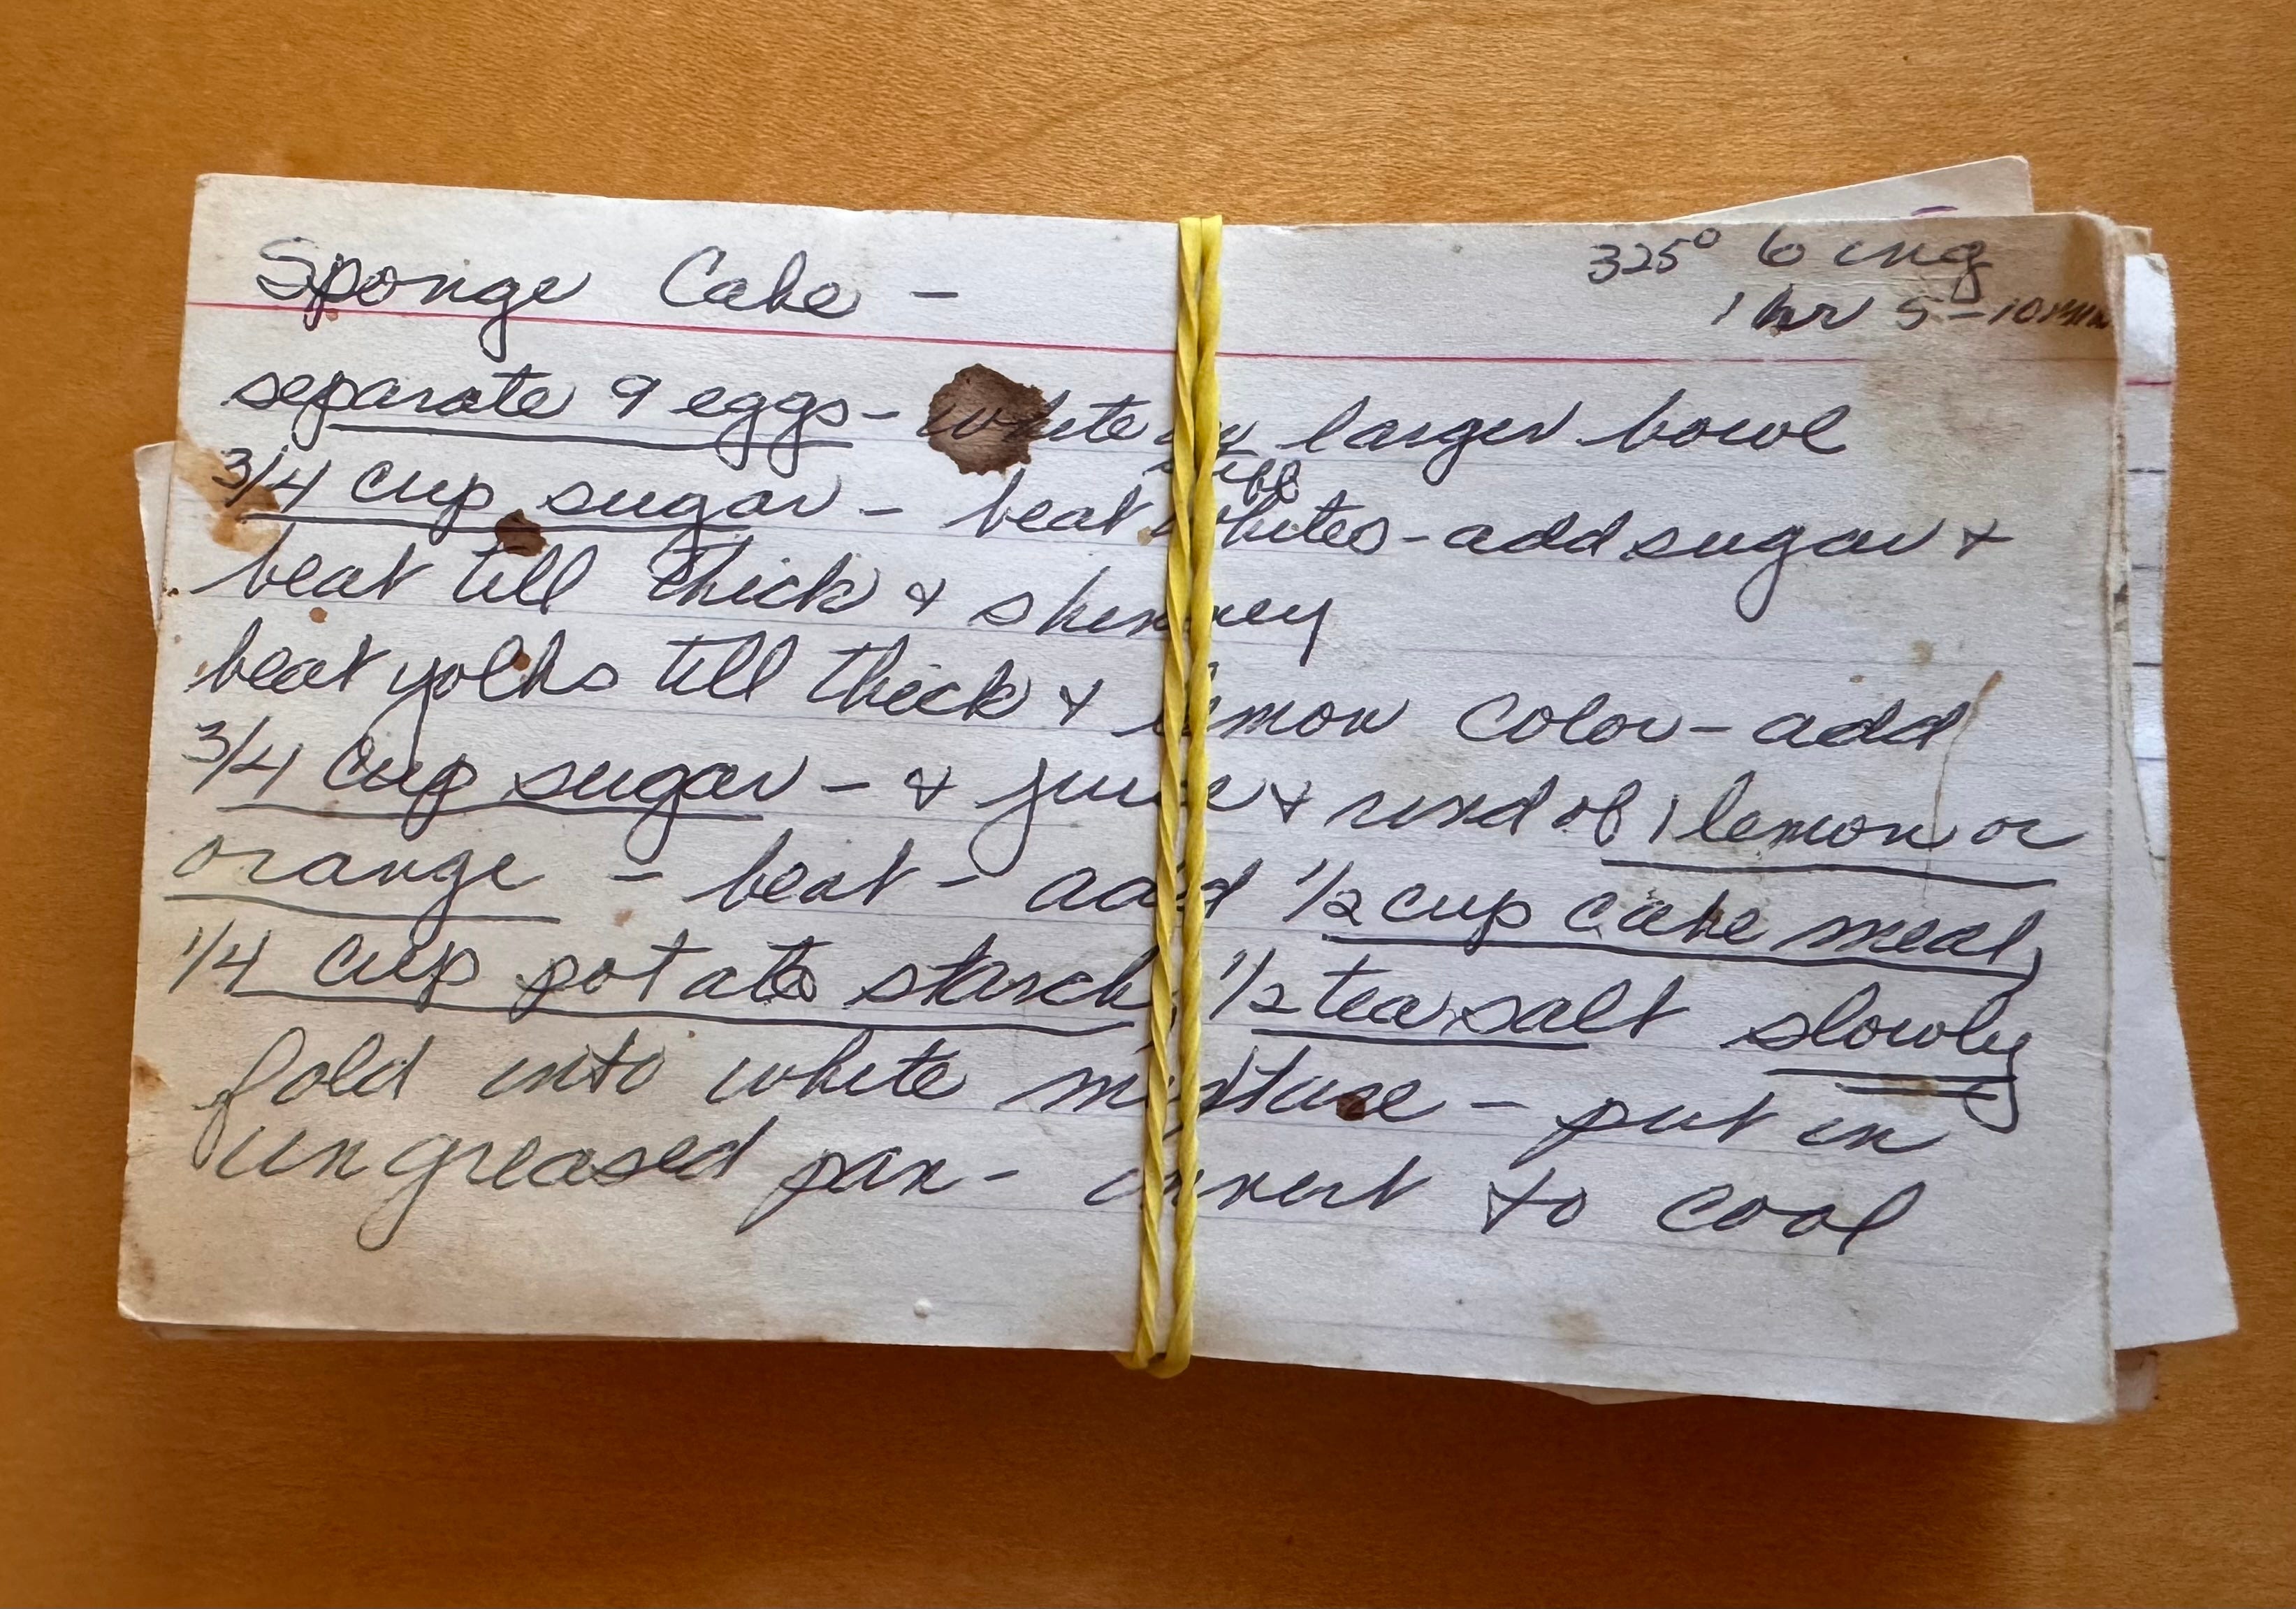 Sponge Cake -
325° 6 ing
1 hr 5-10 min
separate 9 eggs - white in larger bowl
stiff
3/4 cup sugar - beat whites - add sugar +
beat till thick + shinney
beat yolks till thick + lemon color - add
3/4 cup sugar - + juice + rind of 1 lemon or
orange - beat - add 1/2 cup cake meal,
1/4 cup potato starch, 1/2 tea salt slowly
fold into white mixture - put in
ungreased pan - invert to cool